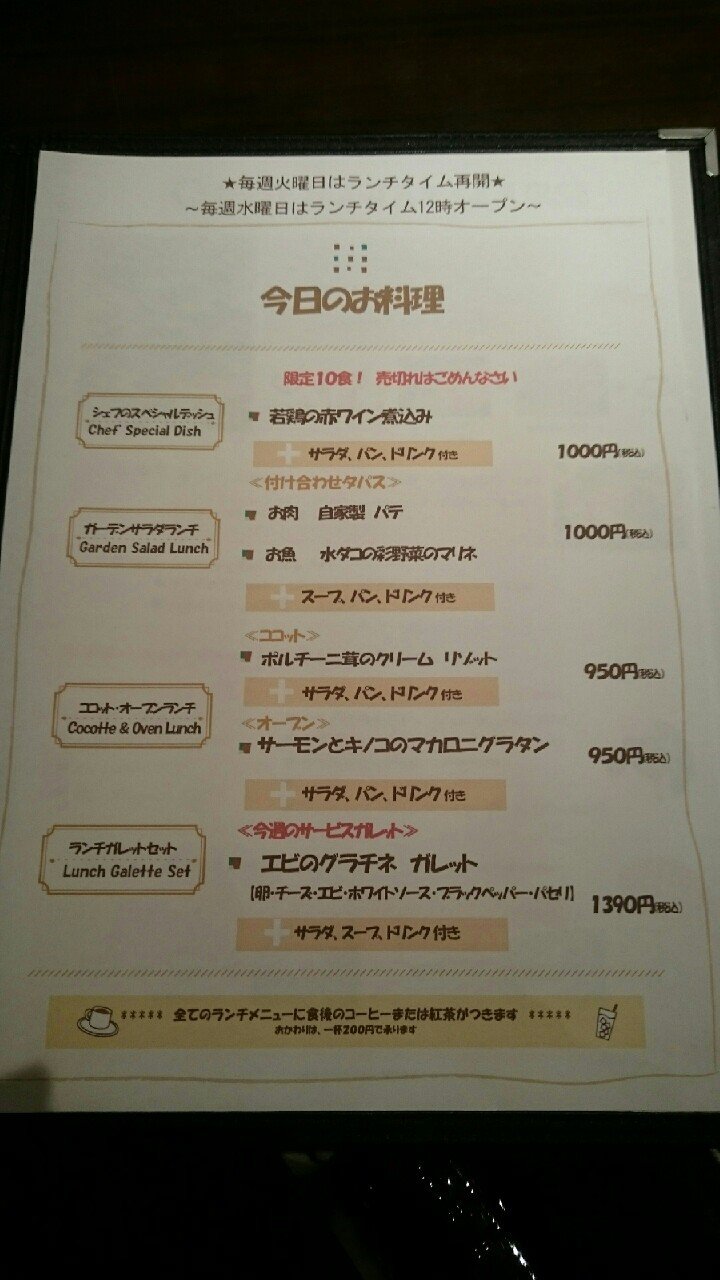 ★毎週火曜日はランチタイム再開★
～毎週水曜日はランチタイム12時オープン～
今日のお料理
限定10食！ 売切れはごめんなさい
シェフのスペシャルディッシュ
Chef Special Dish
若鶏の赤ワイン煮込み
+ サラダ、パン、ドリンク付き
1000円(税込)
≪付け合わせタパス≫
ガーデンサラダランチ
Garden Salad Lunch
お肉 自家製 パテ
1000円(税込)
お魚 水ダコの彩野菜のマリネ
+ スープ、パン、ドリンク付き
≪ココット≫
ポルチーニ茸のクリーム リゾット
950円(税込)
+ サラダ、パン、ドリンク付き
ココット・オーブンランチ
Cocotte & Oven Lunch
≪オーブン≫
サーモンとキノコのマカロニグラタン
950円(税込)
+ サラダ、パン、ドリンク付き
≪今週のサービスガレット≫
ランチガレットセット
Lunch Galette Set
エビのグラチネ ガレット
【卵・チーズ・エビ・ホワイトソース・ブラックペッパー・パセリ】
1390円(税込)
+ サラダ、スープ、ドリンク付き
***** 全てのランチメニューに食後のコーヒーまたは紅茶がつきます *****
おかわりは、一杯200円で承ります